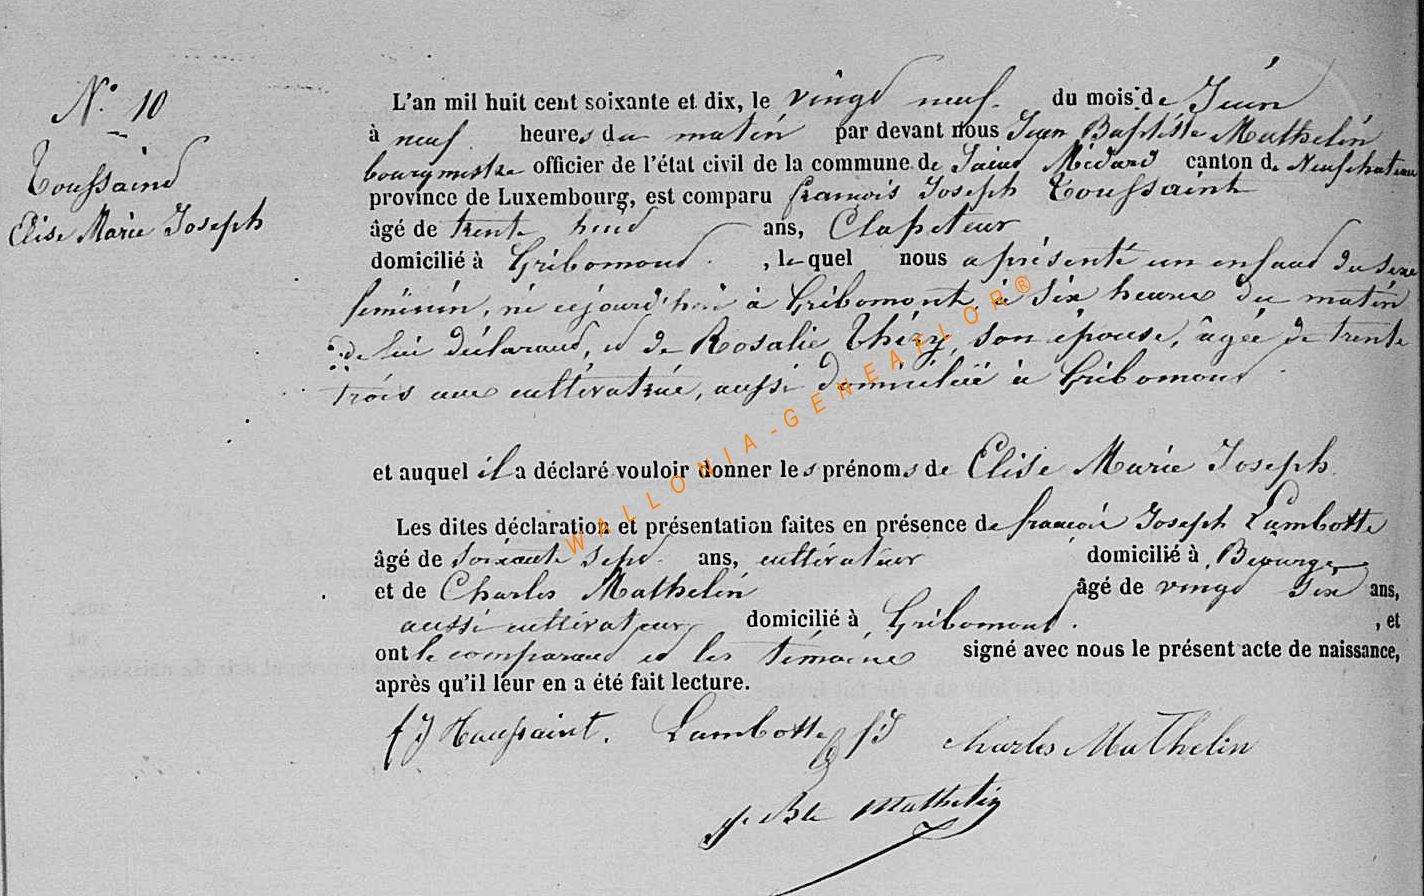 N.° 10
Toussaint
Elise Marie Joseph
L'an mil huit cent soixante et dix, le vingt neuf du mois de Juin
à neuf heures du matin par devant nous Jean Baptiste Mathelin
bourgmestre officier de l'état civil de la commune de Saint Médard canton de Neufchateau
province de Luxembourg, est comparu françois Joseph Toussaint
âgé de trente huit ans, Clapeteur
domicilié à Gribomont , lequel nous a présenté un enfant du sexe
féminin, né cejourd'hui à Gribomont, à six heures du matin
de lui déclarant, et de Rosalie Thiry, son épouse, âgée de trente
trois ans cultivatrice, aussi domiciliée à Gribomont
et auquel il a déclaré vouloir donner les prénoms de Elise Marie Joseph
Les dites déclaration et présentation faites en présence de françois Joseph Lambotte
âgé de soixante sept ans, cultivateur domicilié à
et de Charles Mathelin âgé de vingt six ans,
aussi cultivateur domicilié à Gribomont. , et
ont le comparant et les témoins signé avec nous le présent acte de naissance,
après qu'il leur en a été fait lecture.
f J Toussaint. Lambotte fJ Charles Mathelin
J. Bte Mathelin
WALLONIA-GENEAFLOR®